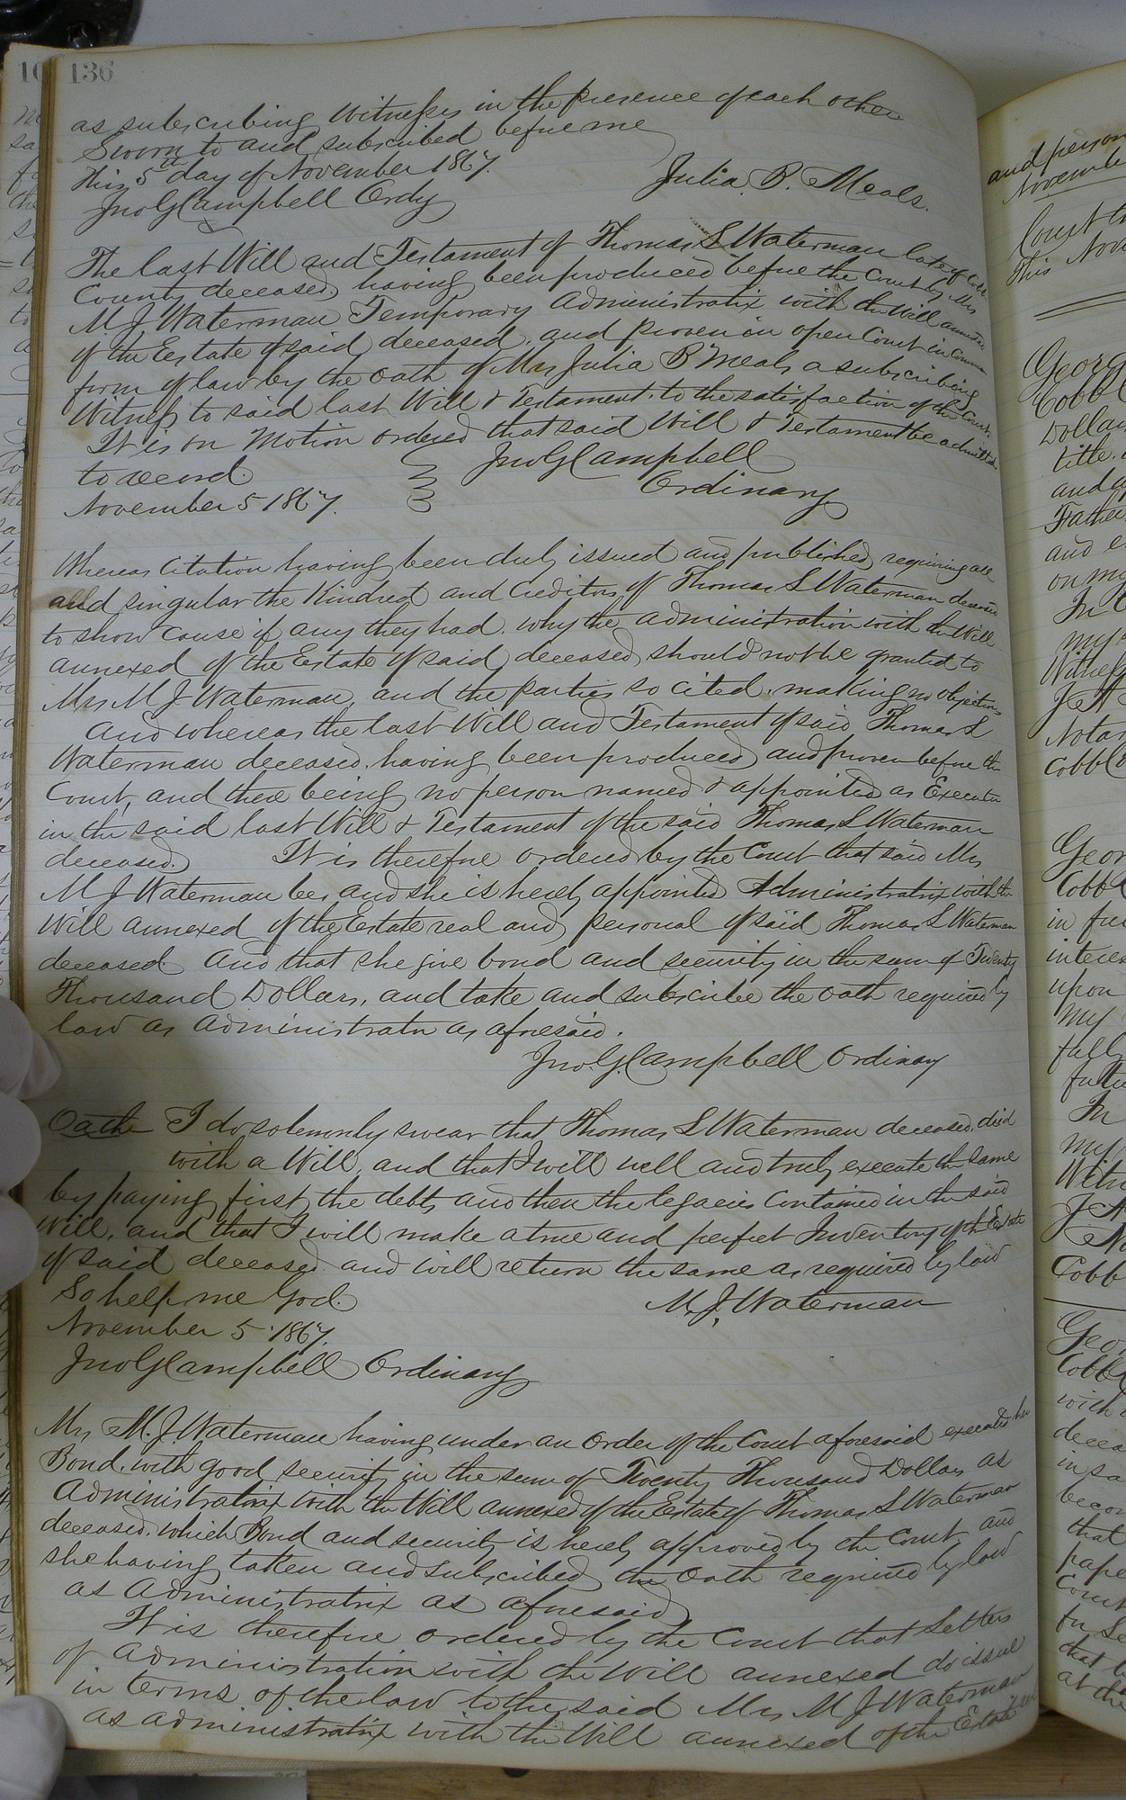 136
as subscribing Witnesses in the presence of each other
Sworn to and subscribed before me
This 5th day of November 1867.
Julia B. Meals.
Jno G Campbell Ordy
The last Will and Testament of Thomas S Waterman late of Cobb
County deceased, having been produced before the Court by Mrs
M J Waterman Temporary Administratrix with the Will annexed
of the Estate of said deceased, and proven in open Court in Common
form of law by the oath of Mrs Julia B Meals a subscribing
Witness to said last Will & Testament. to the satisfaction of the Court.
It is on Motion ordered that said Will & Testament be admitted
to record.
Jno G Campbell
November 5 1867.
Ordinary
Whereas Citation having been duly issued and published, requiring all
and singular the Kindred and Creditors of Thomas S Waterman deceased
to show cause if any they had. why the administration with the Will
annexed of the Estate of said deceased, should not be granted to
Mrs M J Waterman, and the parties so cited. making no objections
And whereas the last Will and Testament of said Thomas S
Waterman deceased. having been produced and proven before the
Court, and there being no person named & appointed as Executor
in the said last Will & Testament of the said Thomas S Waterman
deceased. It is therefore ordered by the Court that said Mrs
M J Waterman be, and she is hereby appointed Administratrix with the
Will annexed of the Estate real and personal of said Thomas S Waterman
deceased And that she give bond and security in the sum of Twenty
Thousand Dollars, and take and subscribe the oath required by
law as administrator as aforesaid.
Jno. G. Campbell Ordinary
Oath I do solemnly swear that Thomas S Waterman deceased. died
with a Will, and that I will well and truly execute the same
by paying first the debts and then the legacies contained in the said
Will, and that I will make a true and perfect Inventory of the Estate
of said deceased and will return the same as required by law
So help me God.
M. J. Waterman
November 5. 1867.
Jno G Campbell Ordinary
Mrs M. J. Waterman having under an order of the Court aforesaid executed her
Bond. with good security in the sum of Twenty Thousand Dollars as
Administratrix with the Will annexed of the Estate of Thomas S Waterman
deceased. which Bond and security is hereby approved by the Court and
she having taken and subscribed the Oath required by law
as Administratrix as aforesaid,
It is therefore ordered by the Court that Letters
of Administration with the Will annexed do issue
in terms of the law to the said Mrs M J Waterman
as administratrix with the Will annexed of the Estate